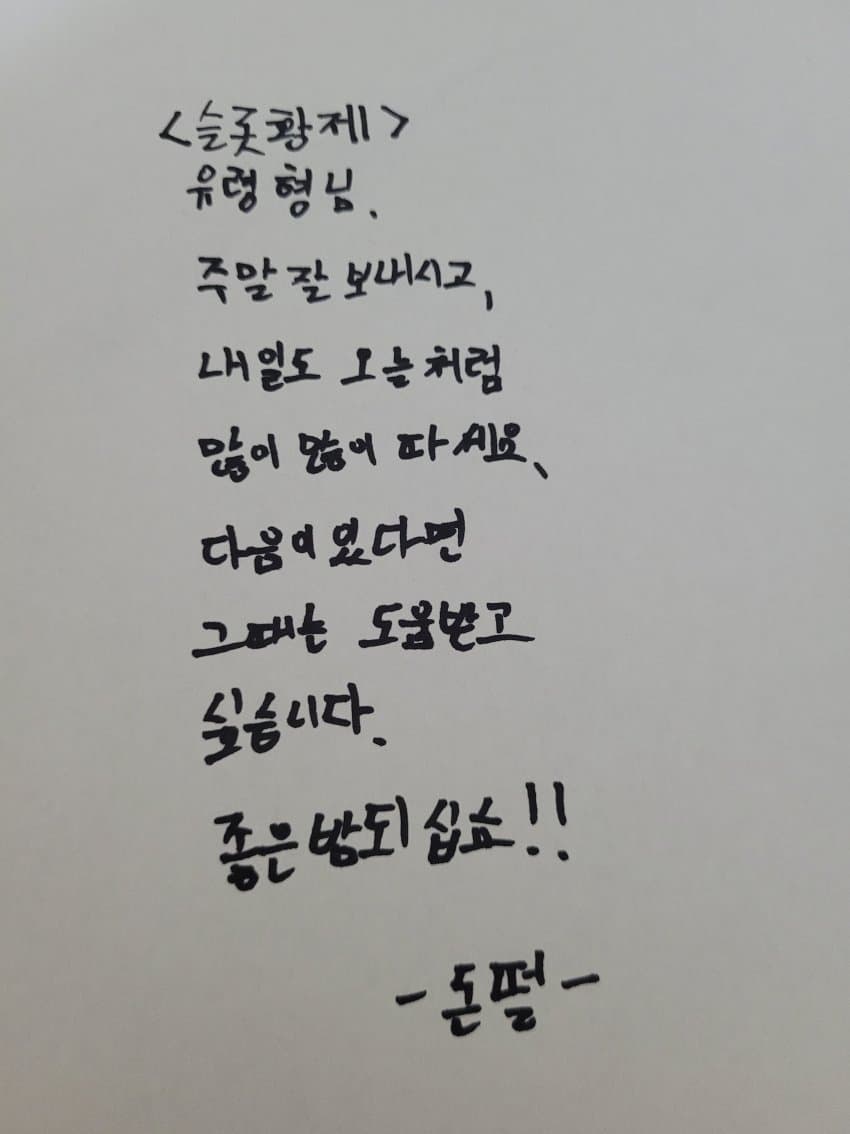 <슬롯황제>
유령 형님.
주말 잘 보내시고,
내일도 오늘처럼
많이 많이 따세요、
다음이 있다면
그때는 도움받고
싶습니다.
좋은 밤되십쇼!!
- 돈떨 -